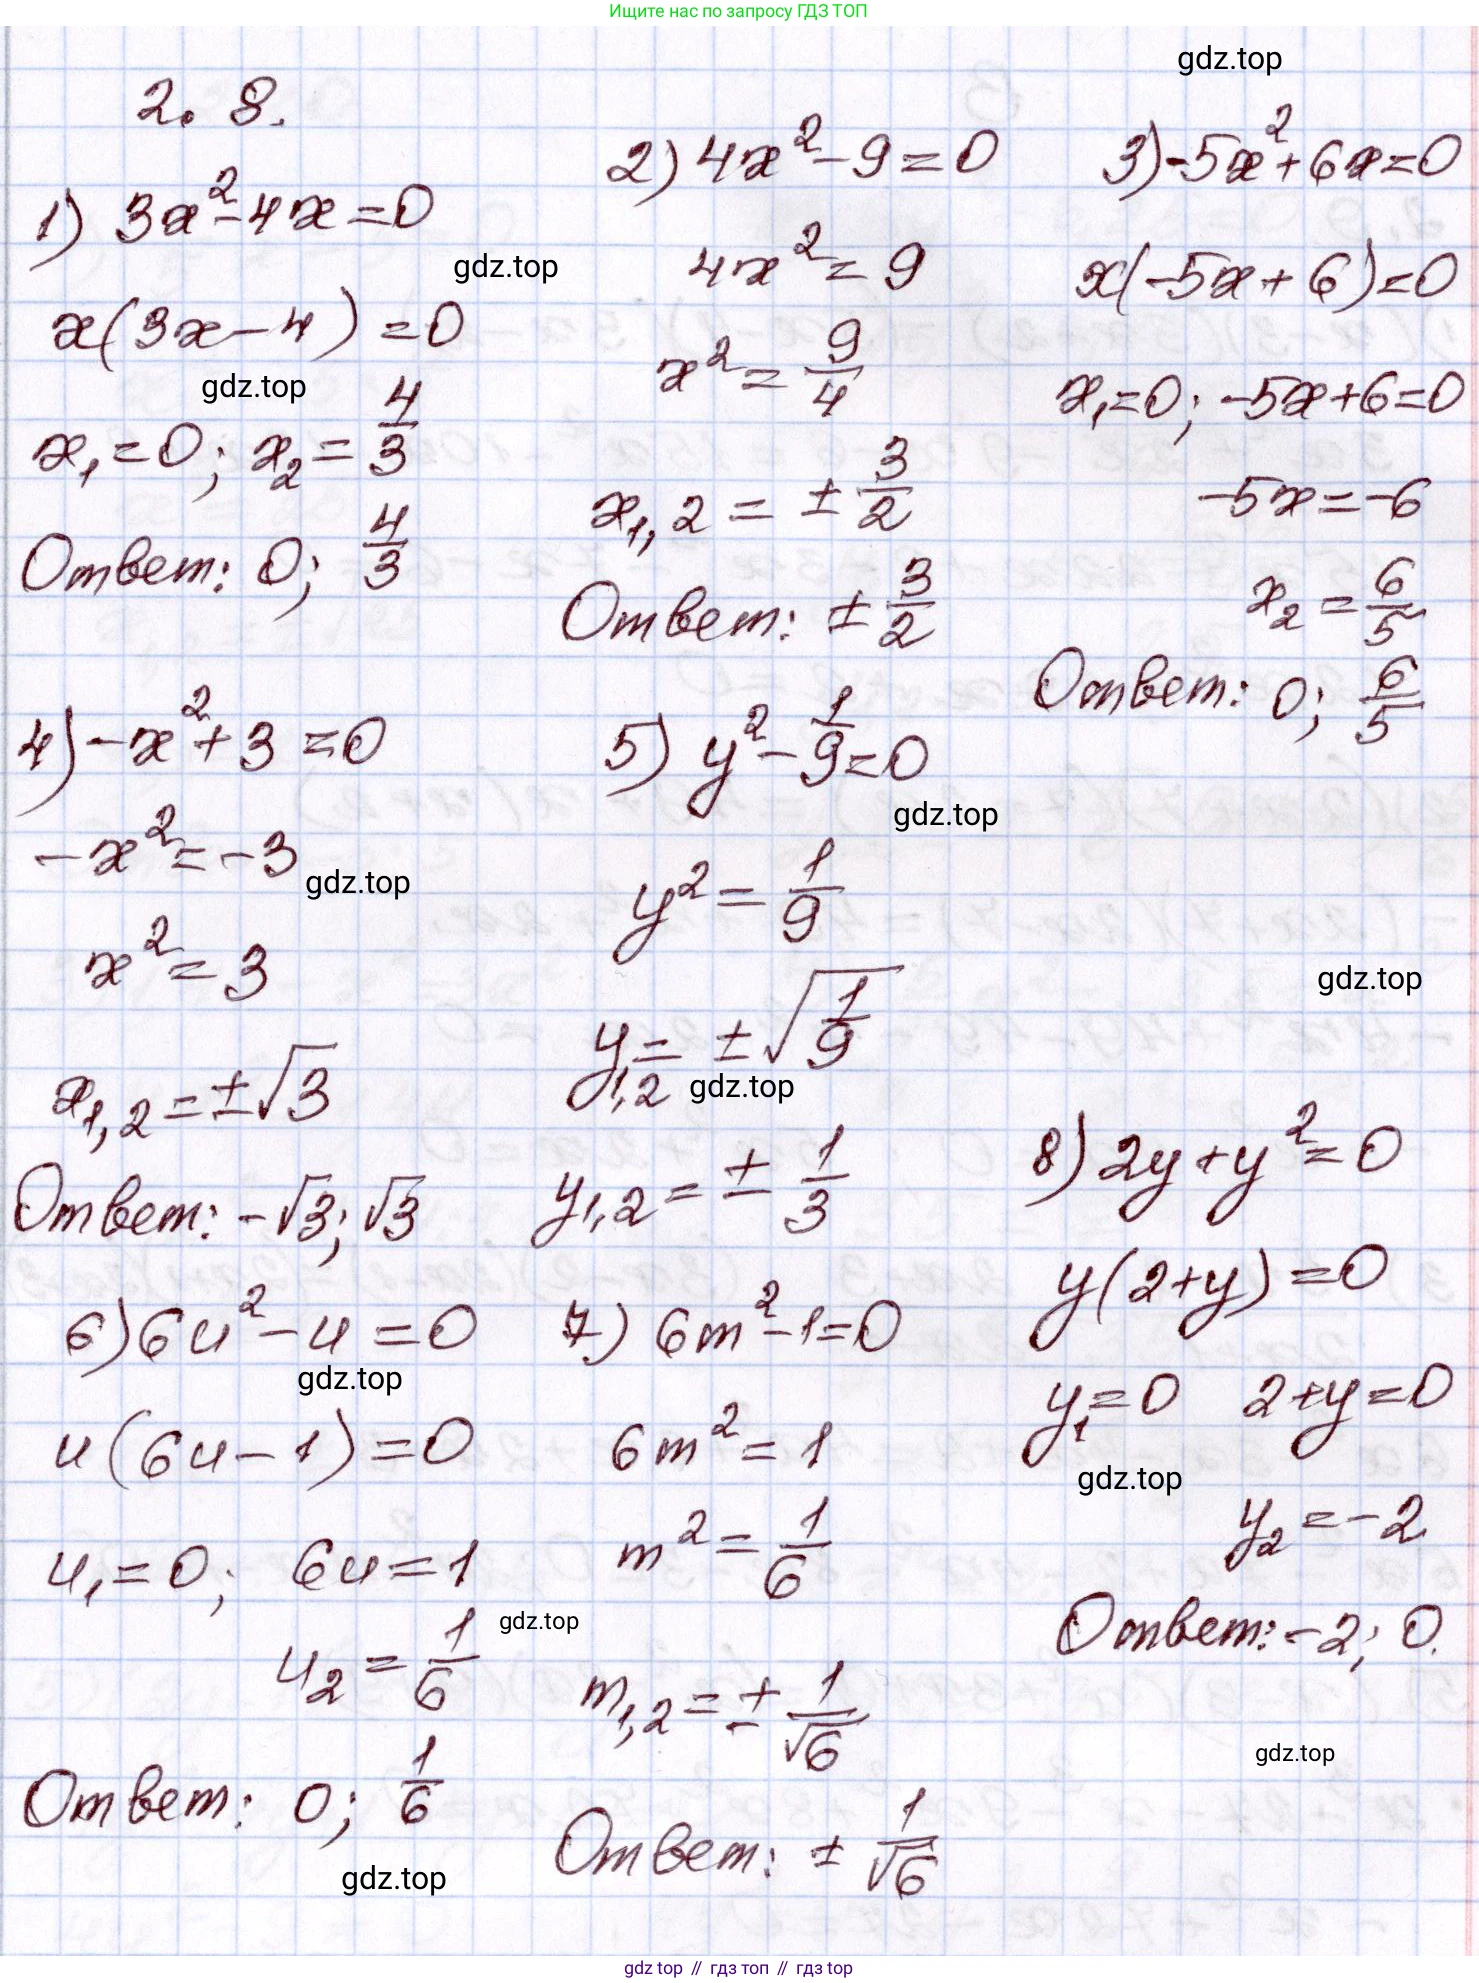 Ищите нас по запросу ГДЗ ТОП
gdz.top
2.8.
1) 3x²-4x=0
gdz.top
x(3x-4)=0
gdz.top
x₁=0; x₂=4/3
Ответ: 0; 4/3
2) 4x²-9=0
4x²=9
x²=9/4
x₁,₂=±3/2
Ответ: ±3/2
3) -5x²+6x=0
x(-5x+6)=0
x₁=0; -5x+6=0
-5x=-6
x₂=6/5
Ответ: 0; 6/5
4) -x²+3=0
-x²=-3
gdz.top
x²=3
x₁,₂=±√3
Ответ: -√3; √3
5) y²-1/9=0
gdz.top
y²=1/9
y₁,₂=±√(1/9)
gdz.top
y₁,₂=±1/3
gdz.top
6) 6u²-u=0
gdz.top
u(6u-1)=0
u₁=0; 6u=1
gdz.top
u₂=1/6
Ответ: 0; 1/6
gdz.top
7) 6m²-1=0
6m²=1
m²=1/6
m₁,₂=±1/√6
Ответ: ±1/√6
8) 2y+y²=0
y(2+y)=0
y₁=0 2+y=0
gdz.top
y₂=-2
Ответ: -2; 0.
gdz.top
gdz top // гдз топ // гдз top